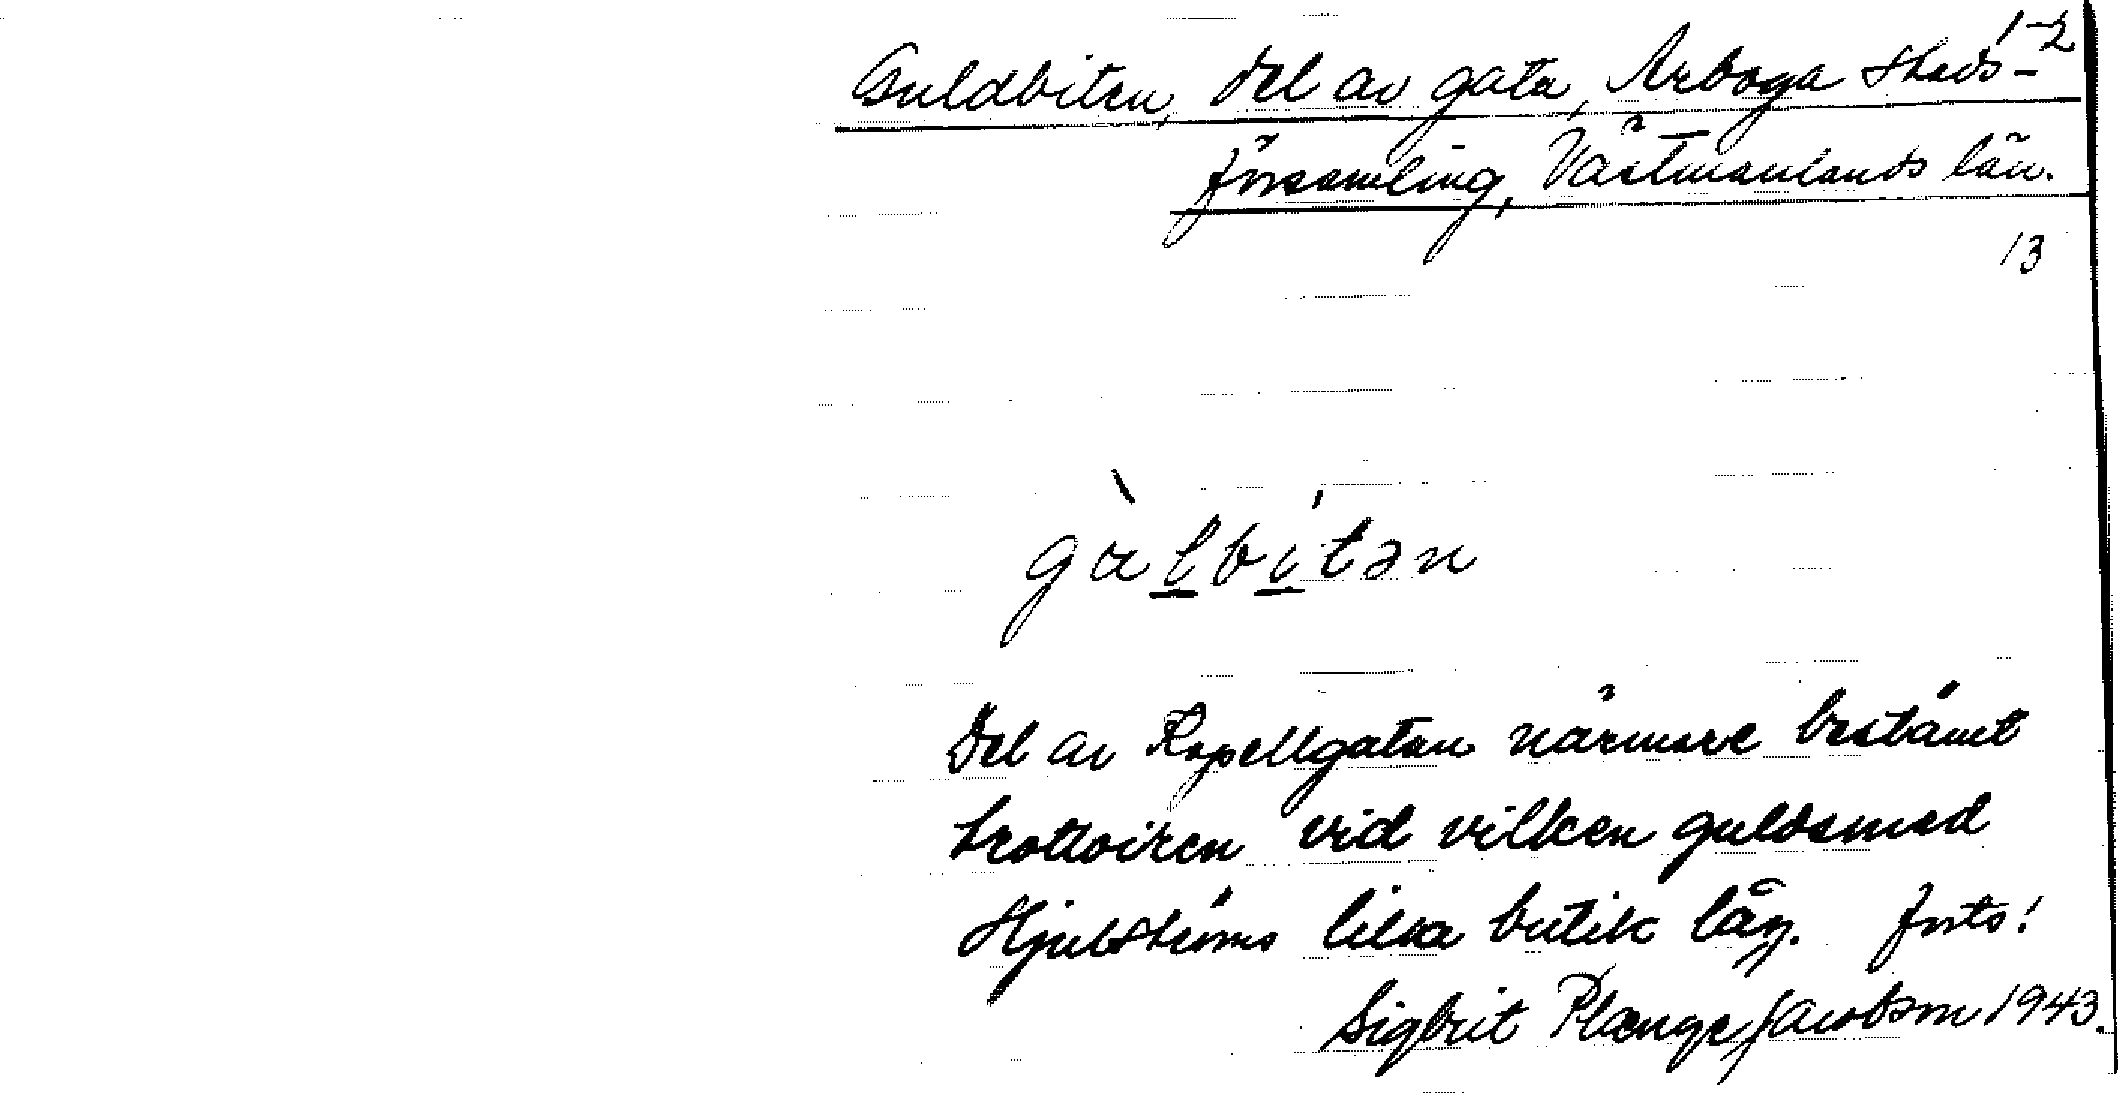 1-2
Guldbiten, del av gata, Arboga stads-
församling, Västmanlands län.
13
gàlbítən
Del av Kapellgatan närmare bestämt
trottoiren vid vilken guldsmed
Hjulströms lilla butik låg. forts!
Sigbrit Plænge Jacobson 1943.